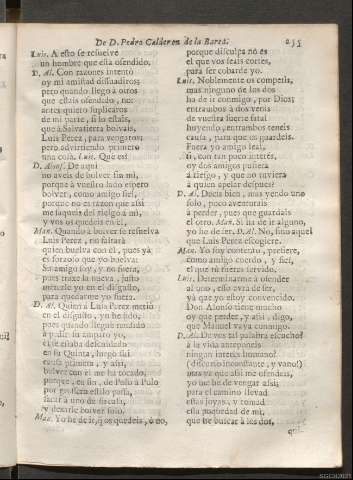 De D. Pedro Calderon de la Barca. 255
Luis. A esto se resuelve
un hombre que està ofendido.
D. Al. Con razones intentò
oy mi amistad dissuadiros;
pero quando llego à otros
que estais ofendido, no:
antes quiero suplicaros
de mi parte, si lo estais,
que à Salvatierra bolvais,
Luis Perez, para vengaros;
pero advirtiendo primero
una cosa. Luis. Que es?
D. Alons. De aqui
no aveis de bolver sin mi,
porque à vuestro lado espero
bolver, como amigo fiel,
porque no es razon que assi
me saqueis del riesgo à mi,
y vos os quedeis en èl.
Man. Quando à bolver se resuelva
Luis Perez, no faltarà
quien buelva con èl, pues yà
es forçoso que yo buelva:
Su amigo soy, y no fuera,
pues traxe la nueva, justo
meterle yo en el disgusto,
para quedarme yo fuera.
D. Al. Quien à Luis Perez metiò
en el disgusto, yo he sido;
pues quando lleguè rendido
à pedir su amparo yo,
el se estaba descuidado
en su Quinta, luego fui
causa primera, y assi,
bolver con èl me ha tocado,
porque, en fin, de Polo à Polo
por grosero estilo passa,
sacar à uno de su casa,
y dexarle bolver solo.
Man. Yo he de ir, q̃ os quedeis, ò no,
porque disculpa no es
el que vos seais cortès,
para ser cobarde yo.
Luis. Noblemente os competis,
mas ninguno de los dos
ha de ir conmigo, por Dios;
entrambos à dos venis
de vuestra suerte fatal
huyendo, entrambos teneis
causa, para que os guardeis.
Fuera yo amigo leal,
si, con tan poco interès,
oy dos amigos pusiera
à riesgo, y que no tuviera
à quien apelar despues?
D. Al. Decìs bien, mas yendo uno
solo, poco aventurais
à perder, pues que guardais
el otro. Man. Si ha de ir alguno,
yo he de ser. D. Al. No, sino aquel
que Luis Perez escogiere.
Man. Yo soy contento, prefiere,
como amigo cuerdo, y fiel,
el que tù fueres servido.
Luis. Determinarme à ofender
al uno, esso avrà de ser,
yà que estoy convencido.
Don Alonso tiene mucho
oy que perder, y assi digo,
que Manuel vaya conmigo.
D. Al. De vos tal palabra escucho?
à la vida anteponeis
ningun interès humano?
(discurso inconstante, y vano!)
mas yà que assi me ofendeis,
yo me he de vengar assi;
para el camino llevad
estas joyas, y tomad
esta poquedad de mi,
que he buscar à los dos,